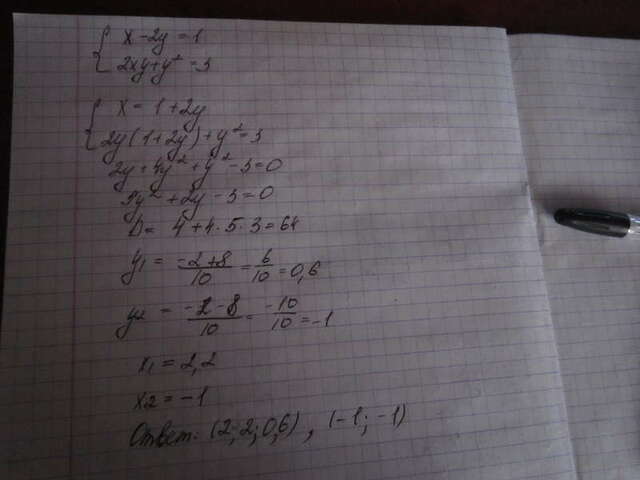 { x - 2y = 1
2xy + y² = 3
{ x = 1 + 2y
2y(1 + 2y) + y² = 3
2y + 4y² + y² - 3 = 0
5y² + 2y - 3 = 0
D = 4 + 4·5·3 = 64
y₁ = (-2 + 8)/10 = 6/10 = 0,6
y₂ = (-2 - 8)/10 = -10/10 = -1
x₁ = 2,2
x₂ = -1
Ответ: (2,2; 0,6), (-1; -1)